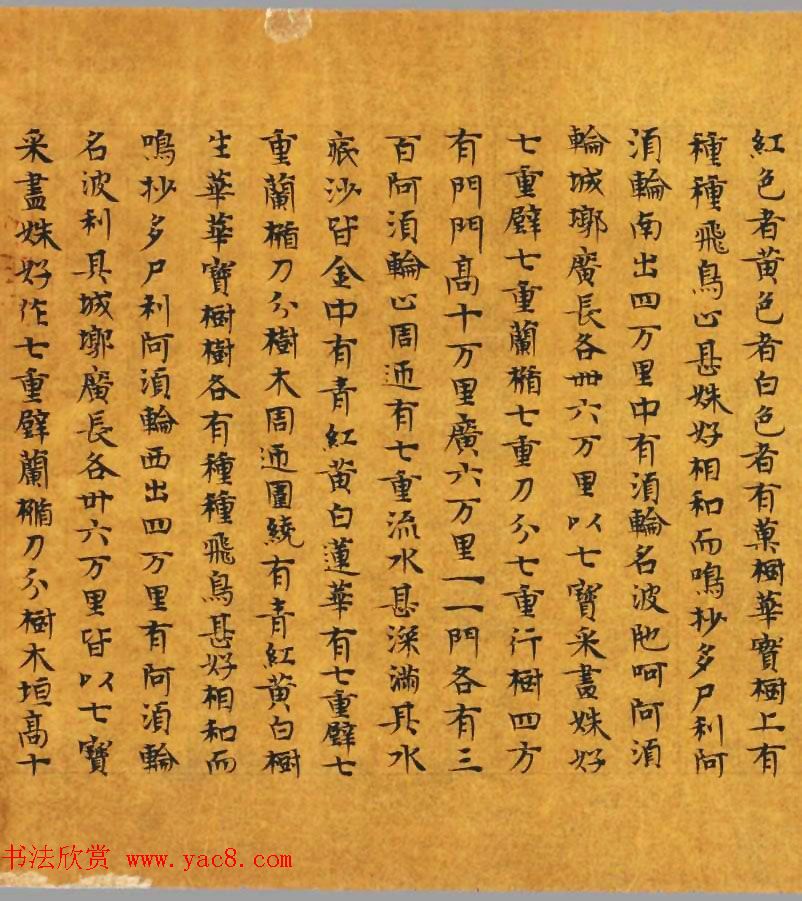 紅色者黄色者白色者有菓樹華實樹上有
種種飛鳥心甚姝好相和而鳴抄多尸利阿
湏輪南出四万里中有湏輪名波陁呵阿湏
輪城墎廣長各卌六万里以七寶采畫姝好
七重壁七重蘭楯七重刀分七重行樹四方
有門門高十万里廣六万里一一門各有三
百阿湏輪心周迊有七重流水甚深滿其水
底沙皆金中有青紅黄白蓮華有七重壁七
重蘭楯刀分樹木周迊圍繞有青紅黄白樹
生華華寶樹樹各有種種飛鳥甚好相和而
鳴抄多尸利阿湏輪西出四万里有阿湏輪
名波利具城墎廣長各卌六万里皆以七寶
采畫姝好作七重壁蘭楯刀分樹木垣高十
书法欣赏 www.yac8.com